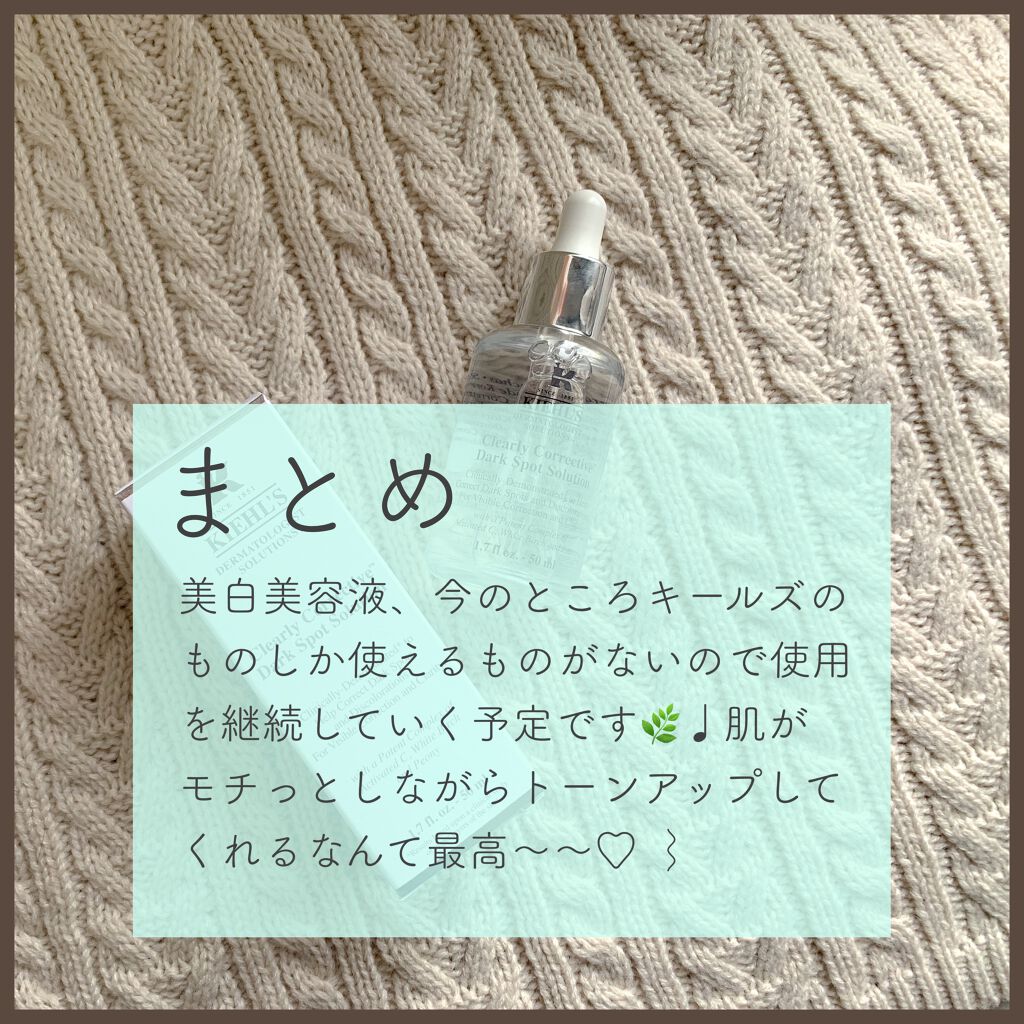 SINCE 1851
KIEHL'S
Clearly Corrective™
Dark Spot Solution
1.7 fl. oz. - 50 ml
SINCE 1851
KIEHL'S
DERMATOLOGIST
SOLUTIONS
Clearly Corrective™
Dark Spot Solution
まとめ
美白美容液、今のところキールズの
ものしか使えるものがないので使用
を継続していく予定です🌿♩肌が
モチっとしながらトーンアップして
くれるなんて最高〜〜♡ ⌇